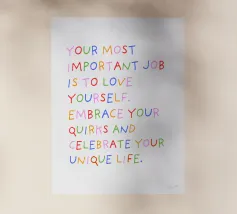 YOUR MOST
IMPORTANT JOB
IS TO LOVE
YOURSELF.
EMBRACE YOUR
QUIRKS AND
CELEBRATE YOUR
UNIQUE LIFE.